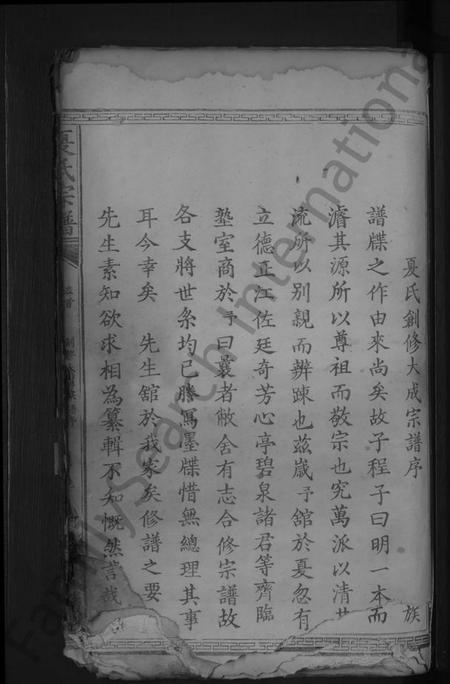 夏氏創修大成宗譜序
譜牒之作由來尚矣故子程子曰明一本而
濬其源所以尊祖而敬宗也究萬派以清其
流所以別親而辨踈也茲歲予舘於夏忽有族
立德正江佐廷奇芳心亭碧泉諸君等齊臨
塾室商於予曰曩者敝舍有志合修宗譜故
各支將世系均已謄寫墨牒惜無總理其事
耳今幸矣 先生舘於我家矣修譜之要
先生素知欲求相為纂輯不知慨然諾哉
夏氏宗譜
FamilySearch International